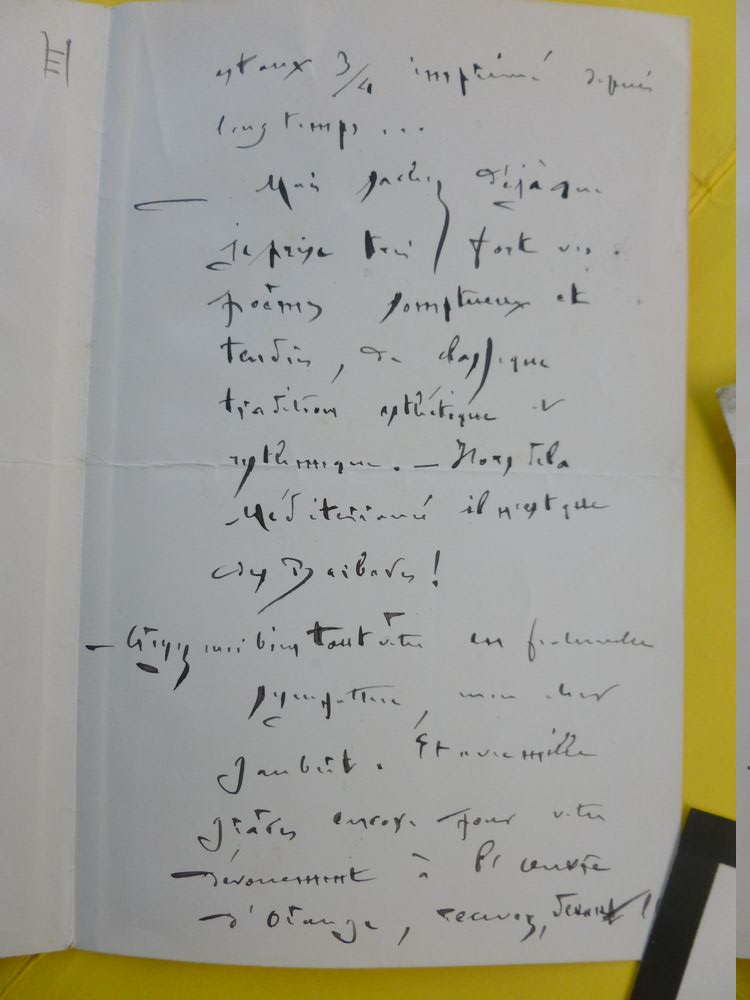 est aux 3/4 imprimé depuis
longtemps...
— Mais sachez déjà que
je prise très fort vos
poèmes somptueux et
tendres, de classique
tradition esthétique et
rythmique. — Hors de la
Méditerranée il n'est que
des Barbares !
— Croyez moi bien tout vôtre en fraternelle
sympathie, mon cher
Jaubert. Et avec mille
grâces encore pour votre
dévouement à l'œuvre
d'Orange, recevez,